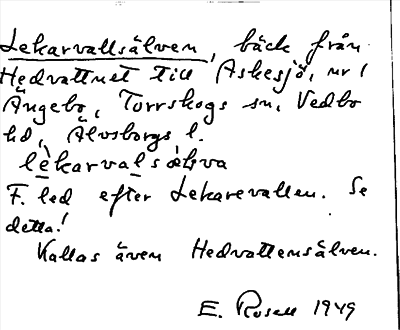 Lekarvallsälven, bäck från
Hedvattnet till Askesjö, nr 1
Ängebo, Torrskogs sn, Vedbo
hd, Älvsborgs l.
lèkarvalsälva
F. led efter Lekarevallen. Se
detta!
Kallas även Hedvattensälven.
E. Rosell 1949